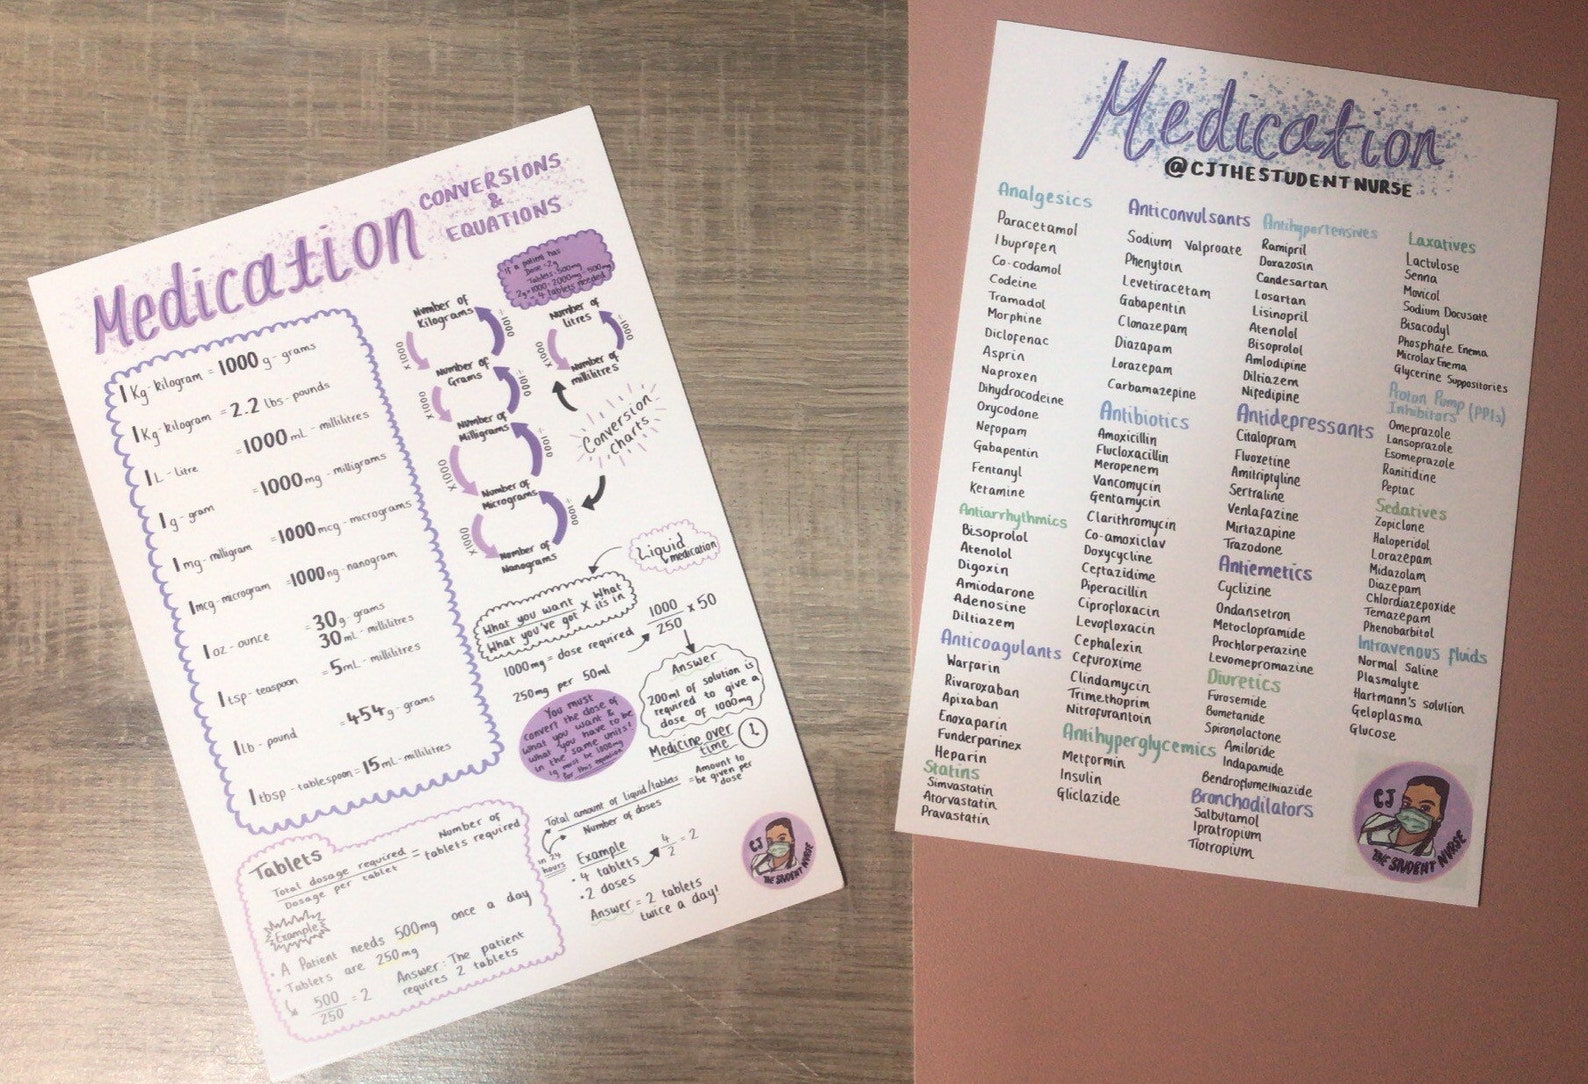 Medication
CONVERSIONS
&
EQUATIONS
1 Kg-kilogram = 1000 g-grams
1 Kg-kilogram = 2.2 lbs-pounds
1 L - litre = 1000 mL - millilitres
1 g-gram = 1000 mg - milligrams
1 mg - milligram = 1000 mcg - micrograms
1 mcg - microgram = 1000 ng - nanogram
1 oz - ounce = 30 g - grams
30 mL - millilitres
1 tsp - teaspoon = 5 mL - millilitres
1 lb - pound = 454 g - grams
1 tbsp - tablespoon = 15 mL - millilitres
If a patient has
Dose = 2g
Tablets = 500mg
2g × 1000 = 2000mg ÷ 500mg
= 4 tablets needed
Number of
Kilograms
x1000
÷1000
Number of
Grams
x1000
÷1000
Number of
Milligrams
x1000
÷1000
Number of
Micrograms
x1000
÷1000
Number of
Nanograms
Number of
litres
x1000
÷1000
Number of
millilitres
Conversion
charts
Liquid
medication
What you want x What
What you've got it's in
1000mg = dose required
250mg per 50ml
1000 x 50
250
Answer
200ml of solution is
required to give a
dose of 1000mg
You must
convert the dose of
what you want &
what you have to be
in the same units!
1g must be 1000mg
for this equation
Medicine over
time
Total amount of liquid/tablets = Amount to
be given per
dose
Number of doses
in 24
hours
Example
• 4 tablets
• 2 doses
4 = 2
2
Answer = 2 tablets
twice a day!
Tablets
Total dosage required = Number of
Dosage per tablet tablets required
Example
• A Patient needs 500mg once a day
• Tablets are 250mg
500 = 2
250
Answer: The patient
requires 2 tablets
CJ
THE STUDENT NURSE
Medication
@CJTHESTUDENTNURSE
Analgesics
Paracetamol
Ibuprofen
Co-codamol
Codeine
Tramadol
Morphine
Diclofenac
Asprin
Naproxen
Dihydrocodeine
Oxycodone
Nefopam
Gabapentin
Fentanyl
Ketamine
Antiarrhythmics
Bisoprolol
Atenolol
Digoxin
Amiodarone
Adenosine
Diltiazem
Anticoagulants
Warfarin
Rivaroxaban
Apixaban
Enoxaparin
Funderparinex
Heparin
Statins
Simvastatin
Atorvastatin
Pravastatin
Anticonvulsants
Sodium Valproate
Phenytoin
Levetiracetam
Gabapentin
Clonazepam
Diazapam
Lorazepam
Carbamazepine
Antibiotics
Amoxicillin
Flucloxacillin
Meropenem
Vancomycin
Gentamycin
Clarithromycin
Co-amoxiclav
Doxycycline
Ceftazidime
Piperacillin
Ciprofloxacin
Levofloxacin
Cephalexin
Cefuroxime
Clindamycin
Trimethoprim
Nitrofurantoin
Antihyperglycemics
Metformin
Insulin
Gliclazide
Antihypertensives
Ramipril
Doxazosin
Candesartan
Losartan
Lisinopril
Atenolol
Bisoprolol
Amlodipine
Diltiazem
Nifedipine
Antidepressants
Citalopram
Fluoxetine
Amitriptyline
Sertraline
Venlafazine
Mirtazapine
Trazodone
Antiemetics
Cyclizine
Ondansetron
Metoclopramide
Prochlorperazine
Levomepromazine
Diuretics
Furosemide
Bumetanide
Spironolactone
Amiloride
Indapamide
Bendroflumethiazide
Bronchodilators
Salbutamol
Ipratropium
Tiotropium
Laxatives
Lactulose
Senna
Movicol
Sodium Docusate
Bisacodyl
Phosphate Enema
Microlax Enema
Glycerine Suppositories
Proton Pump (PPIs)
Inhibitors
Omeprazole
Lansoprazole
Esomeprazole
Ranitidine
Peptac
Sedatives
Zopiclone
Haloperidol
Lorazepam
Midazolam
Diazepam
Chlordiazepoxide
Temazepam
Phenobarbitol
Intravenous fluids
Normal Saline
Plasmalyte
Hartmann's solution
Geloplasma
Glucose
CJ
THE STUDENT NURSE